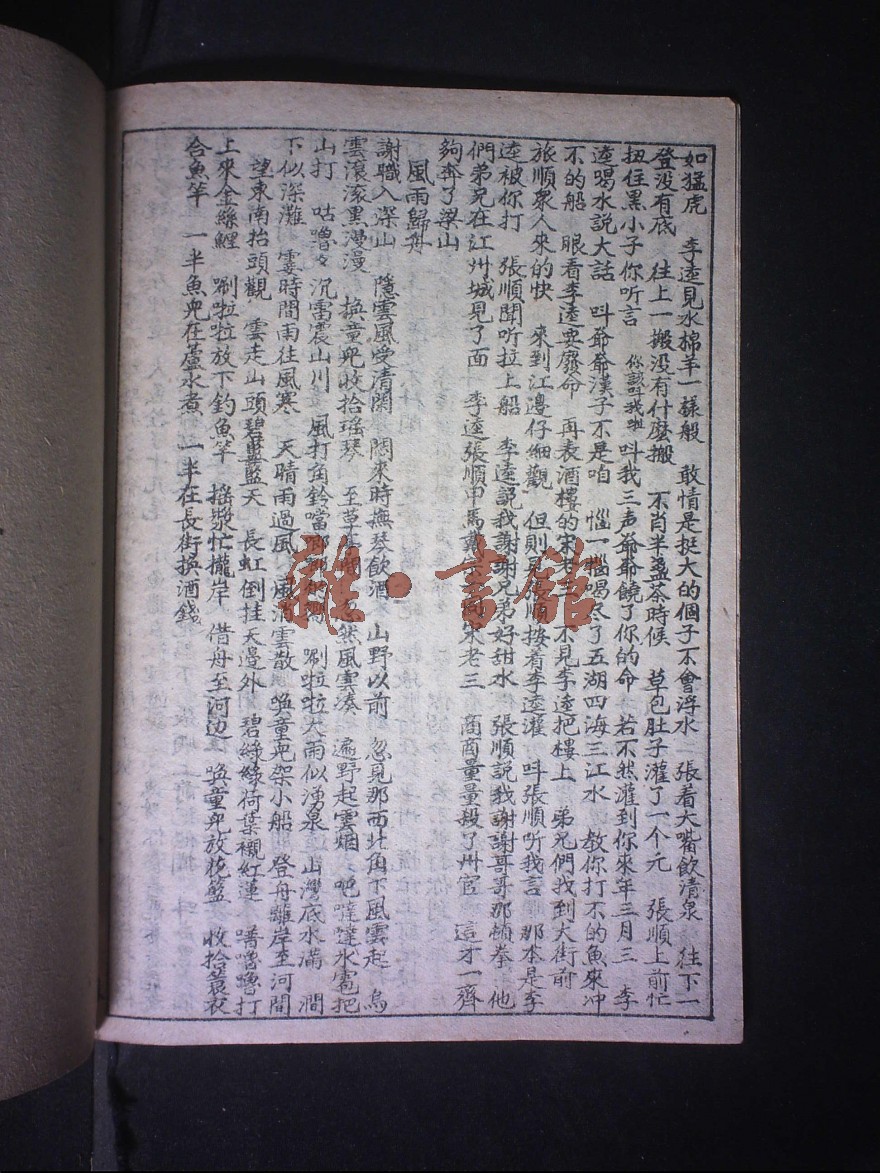 如猛虎　李逵見水棉羊一樣般　敢情是挺大的個子不會浮水　張着大嘴飲清泉　往下一
登没有底　往上一搬没有什麽搬　不肖半盞茶時候　草包肚子灌了一个元　張順上前忙
扭住黑小子你听言　你該叫我啦　叫我三声爷爷饒了你的命　若不然灌到你來年三月三　李
逵喝水說大話　叫爺爺漢子不是咱　惱一惱喝尽了五湖四海三江水　教你打不的魚來冲
不的船　眼看李逵要廢命　再表酒樓的宋老三　不見李逵把樓上　弟兄們找到大街前
旅順衆人來的快　來到江邊仔細觀　但則見張順按着李逵灌　叫張順听我言　那本是李
逵被你打　張順聞听拉上船　李逵説我謝謝兄弟好甜水　張順說我謝謝哥哥那頓拳　他
們弟兄在江州城見了面　李逵張順中馬戴宗宋老三　商商量量殺了州官　這才一齊
夠奔了梁山
風雨歸舟
謝職入深山　隱雲風受清閑　閑來時撫琴飲酒　山野以前　忽見那西北角下風雲起　烏
雲滾滾黑漫漫　换童兒收拾瑶琴　至草亭　忽然風雲湊　遍野起雲烟　吧噠噠氷雹把
山打　咕嚕々　沉雷震山川　風打角鈴噹啷啷的響　唰啦啦大雨似湧泉　山灣底水滿　澗
下似深灘　霎時間雨往風寒　天晴雨過風　風消雲散　唤童兒架小船　登舟離岸至河間
望東南抬頭觀　雲走山頭碧藍藍天　長虹倒挂天邊外　碧綠綠荷葉襯紅蓮　噜噜打
上來金絲鯉　唰啦啦放下釣魚竿　摇漿忙攏岸　借舟至河边　唤童兒放花籃　收拾蓑衣
合魚竿　一半魚兒在蘆水煮　一半在長街换酒錢
雜·書館